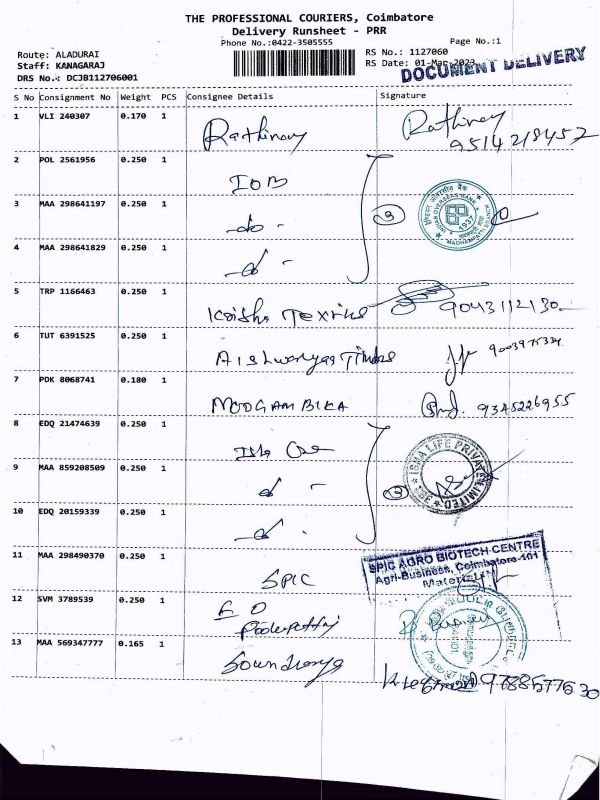 THE PROFESSIONAL COURIERS, Coimbatore
Delivery Runsheet - PRR
Phone No.:0422-3505555
Page No.:1
Route: ALADURAI
Staff: KANAGARAJ
DRS No.: DCJB112706001
RS No.: 1127060
RS Date: 01-Mar-2023
DOCUMENT DELIVERY
S No Consignment No Weight PCS Consignee Details Signature
1 VLI 240307 0.170 1 Rathinay Rathinay
9514218457
2 POL 2561956 0.250 1 IOB
3 MAA 298641197 0.250 1 -do- 3
INDIAN OVERSEAS BANK
1937
4 MAA 298641829 0.250 1
5 TRP 1166463 0.250 1 9043112130
6 TUT 6391525 0.250 1 Aishwaryas Timbre 9003975334
7 PDK 8068741 0.180 1 MOOGAMBIKA 9345226955
8 EDQ 21474639 0.250 1
9 MAA 859208509 0.250 1 3
ISHA LIFE PRIVATE LIMITED
10 EDQ 20159339 0.250 1
11 MAA 298490370 0.250 1 SPIC
SPIC AGRO BIOTECH CENTRE
Agri-Business, Coimbatore-101
12 SVM 3789539 0.250 1 E O
13 MAA 569347777 0.165 1 Soundraya 9788577630